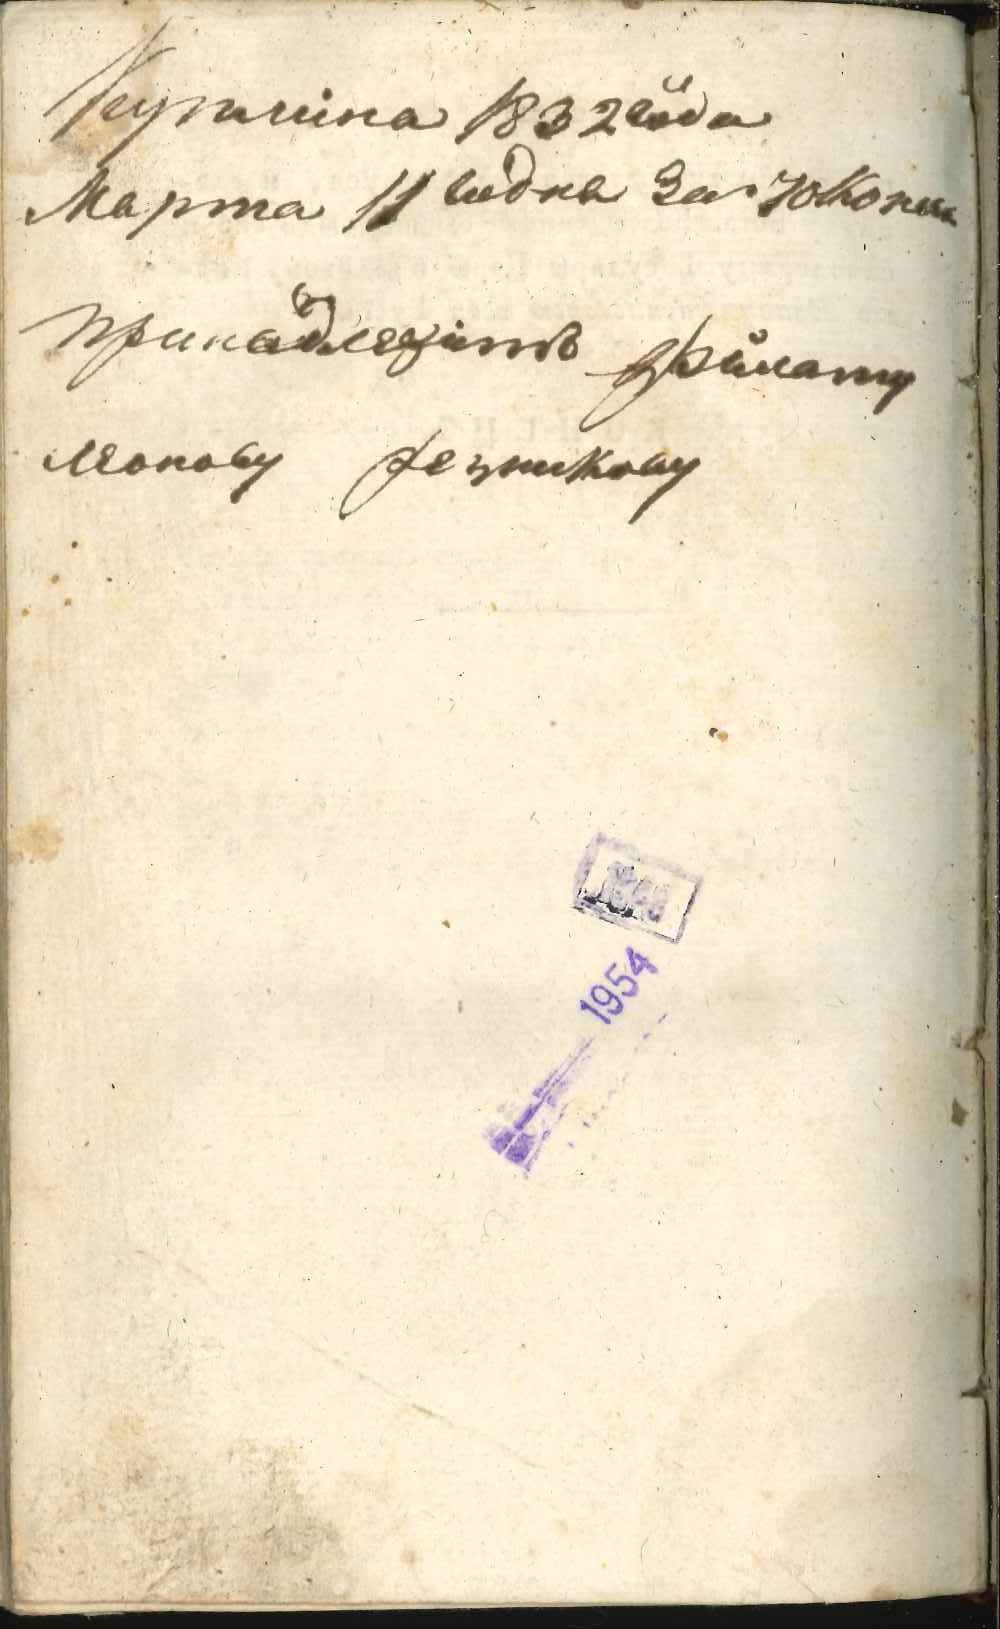 Куплина 1832 года
Марта 11 го дня За 70 Копеек
принадлежитъ Филату
леонову резникову
1954